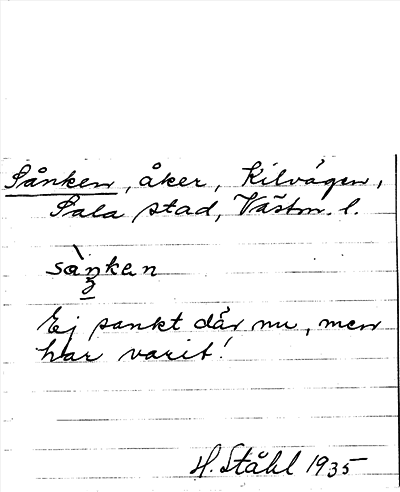 Sånken, åker, Kilvägen,
Sala stad, Västm. l.
sàŋkan
Ej sankt där nu, men
har varit!
H. Ståhl 1935